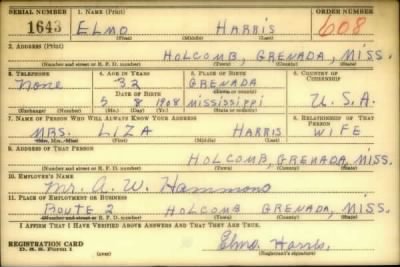 SERIAL NUMBER 1. NAME (Print) ORDER NUMBER
1643 ELMO HARRIS 608
(First) (Middle) (Last)
2. ADDRESS (Print)
HOLCOMB, GRENADA, MISS.
(Number and street or R. F. D. number) (Town) (County) (State)
3. TELEPHONE 4. AGE IN YEARS 5. PLACE OF BIRTH 6. COUNTRY OF CITIZENSHIP
None 32 GRENADA
DATE OF BIRTH (Town or county)
5 8 1908 MISSISSIPPI U.S.A.
(Exchange) (Number) (Mo.) (Day) (Yr.) (State or country)
7. NAME OF PERSON WHO WILL ALWAYS KNOW YOUR ADDRESS 8. RELATIONSHIP OF THAT PERSON
MRS. LIZA HARRIS WIFE
(Mr., Mrs., Miss) (First) (Middle) (Last)
9. ADDRESS OF THAT PERSON
HOLCOMB, GRENADA, MISS.
(Number and street or R. F. D. number) (Town) (County) (State)
10. EMPLOYER'S NAME
Mr. A. W. Hammond
11. PLACE OF EMPLOYMENT OR BUSINESS
ROUTE 2 HOLCOMB GRENADA, MISS.
(Number and street or R. F. D. number) (Town) (County) (State)
I AFFIRM THAT I HAVE VERIFIED ABOVE ANSWERS AND THAT THEY ARE TRUE.
REGISTRATION CARD Elmo Harris
D. S. S. Form 1 (Registrant's signature)